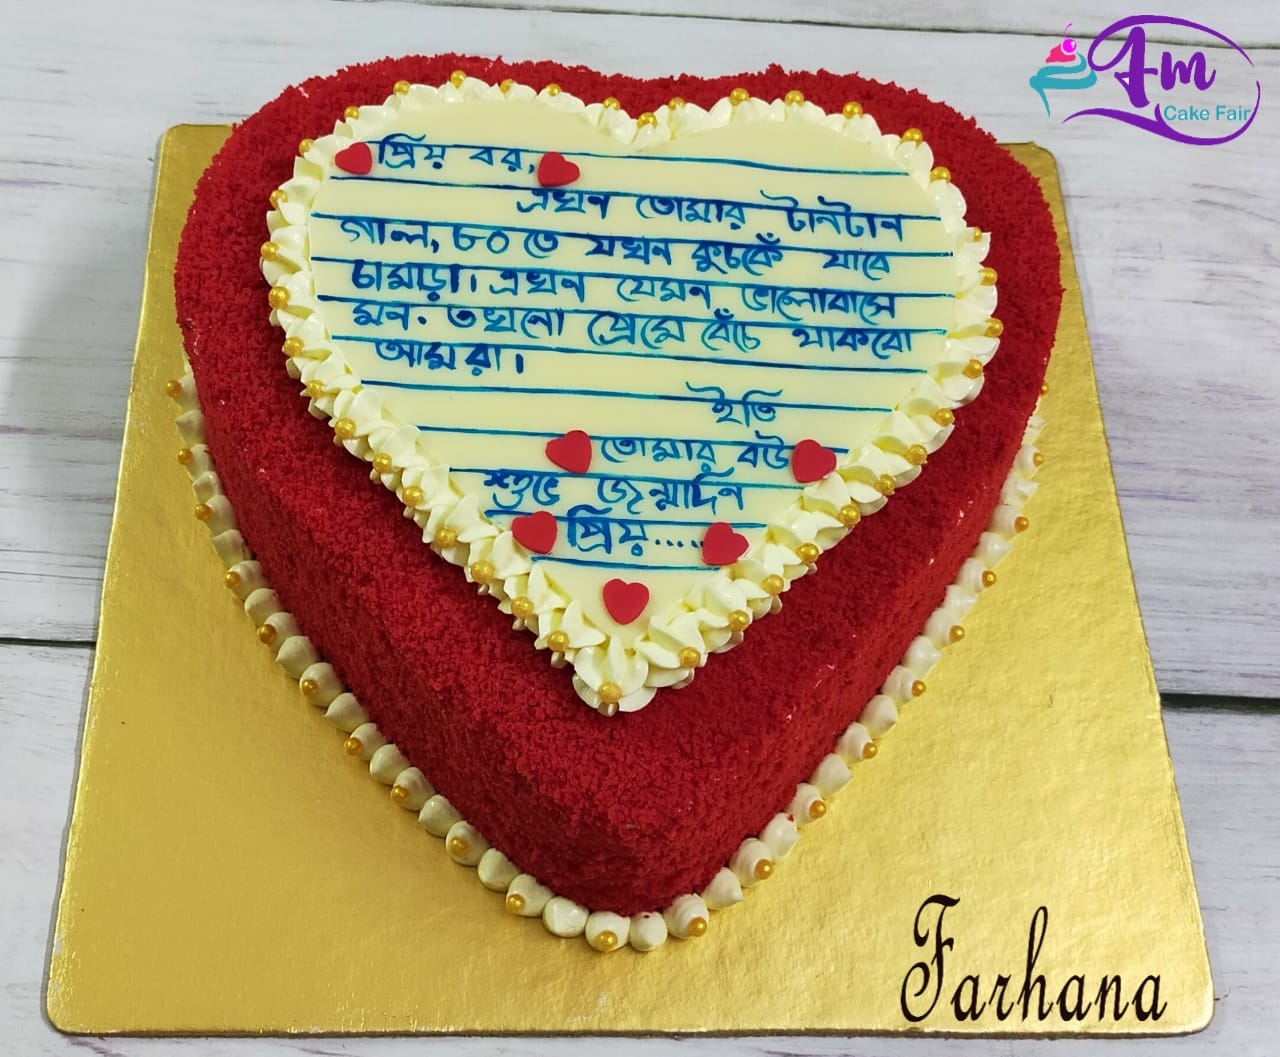 Am
Cake Fair
প্রিয় বর,
এখন তোমার টানটান
গাল, ৮০ তে যখন কুচকেঁ যাবে
চামাড়া। এখন যেমন ভালোবাসে
মন. তখনো প্রেমে বেঁচে থাকবো
আমরা।
ইতি
তোমার বউ
শুভে জন্মদিন
প্রিয়.....
Farhana